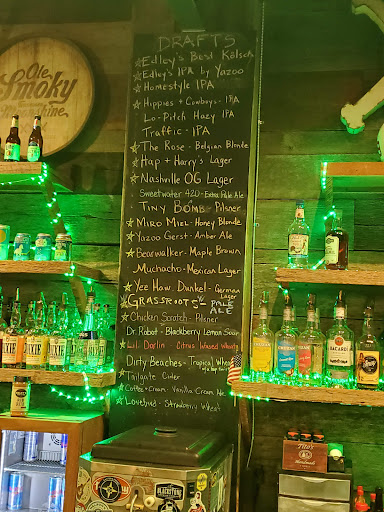 DRAFTS
Edley's Best Kölsch
Edley's IPA by Yazoo
Homestyle IPA
Hippies + Cowboys - IPA
Lo-Pitch Hazy IPA
Traffic - IPA
The Rose - Belgian Blonde
Hap + Harry's Lager
Nashville OG Lager
Sweetwater 420 - Extra Pale Ale
Tiny Bomb - Pilsner
Miro Miel - Honey Blonde
Yazoo Gerst - Amber Ale
Bearwalker - Maple Brown
Muchacho - Mexican Lager
Yee Haw Dunkel - German Lager
Grassroots - Pale Ale
Chicken Scratch - Pilsner
Dr. Robot - Blackberry Lemon Sour
Lil Darlin - Citrus Infused Wheaty
Dirty Beaches - Tropical Wheat
Tailgate Cider
Coffee + Cream - Vanilla Cream Ale
Lovebird - Strawberry Wheat
Ole
Smoky
Moonshine
DIXIE
BACARDI
Tito's
BLACKSTONE